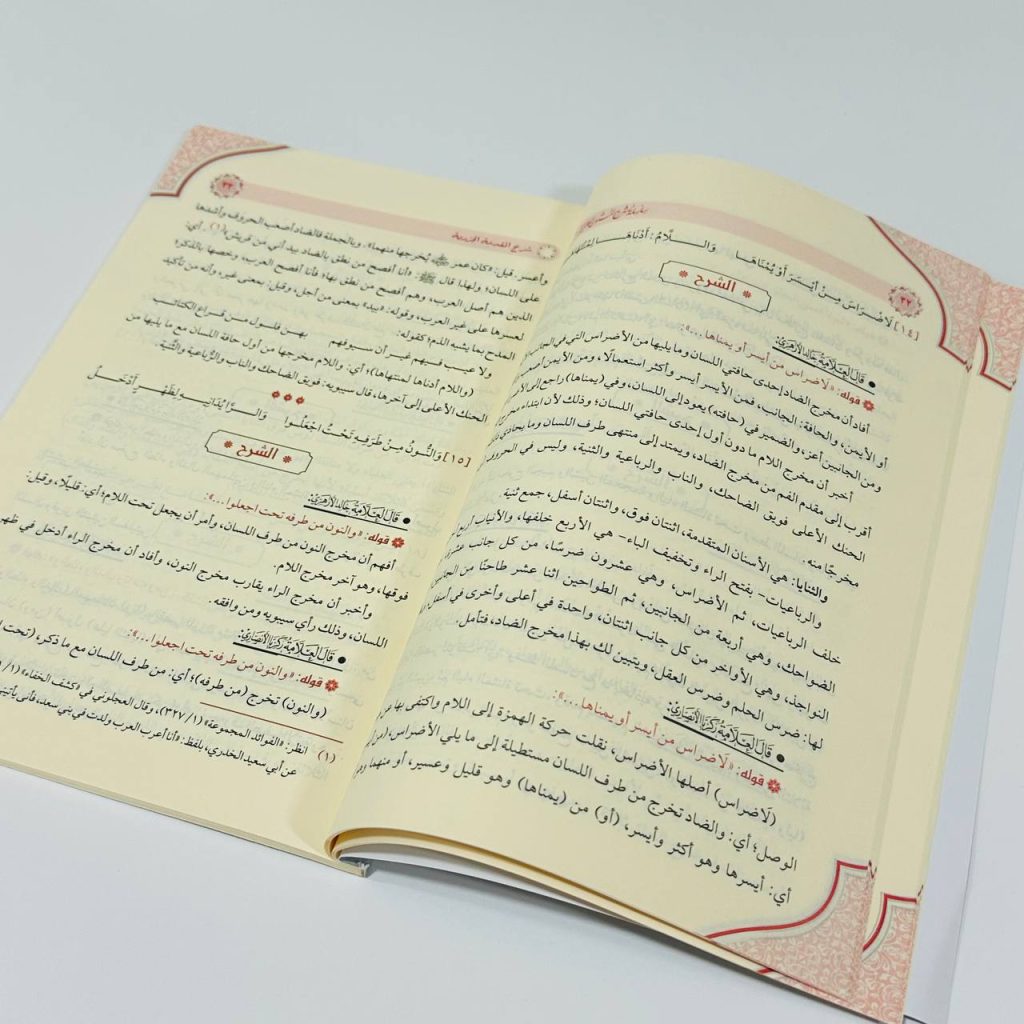 ٢٢
[١٤] لَاضْرَاسَ مِنْ أَيْسَرَ أَوْ يُمْنَاهَا وَالـلَّامُ: أَدْنَاهَـا لِمُنْتَهَا
الشرح
• قَالَ العَلَّامَةُ خَالِدُ الأَزْهَرِيُّ:
قوله: «لاضراس من أيسر أو يمناها...»:
أفاد أن مخرج الضاد إحدى حافتي اللسان وما يليها من الأضراس التي في الجانب
أو الأيمن، والحافة: الجانب، فمن الأيسر أيسر وأكثر استعمالًا، ومن الأيمن
ومن الجانبين أعز، والضمير في (حافته) يعود إلى اللسان، وفي (يمناها) راجع إلى
أخبر أن مخرج اللام ما دون أول إحدى حافتي اللسان؛ وذلك لأن ابتداء مخرج
أقرب إلى مقدم الفم من مخرج الضاد، ويمتد إلى منتهى طرف اللسان وما يحاذي
الحنك الأعلى فويق الضاحك، والناب والرباعية والثنية، وليس في الحروف
مخرجًا منه.
والثنايا: هي الأسنان المتقدمة، اثنتان فوق، واثنتان أسفل، جمع ثنية.
والرباعيات- بفتح الراء وتخفيف الياء- هي الأربع خلفها، والأنياب أربع
خلف الرباعيات، ثم الأضراس، وهي عشرون ضرسًا، من كل جانب عشرة
الضواحك، وهي أربعة من الجانبين، ثم الطواحين اثنا عشر طاحنًا من الجانبين
النواجذ، وهي الأواخر من كل جانب اثنتان، واحدة في أعلى وأخرى في أسفل
لها: ضرس الحلم وضرس العقل، ويتبين لك بهذا مخرج الضاد، فتأمل.
• قَالَ العَلَّامَةُ زَكَرِيَّا الأَنْصَارِيُّ:
قوله: «لاضراس من أيسر أو يمناها...»:
(لَاضراس) أصلها الأضراس، نقلت حركة الهمزة إلى اللام واكتفى بها عن
الوصل؛ أي: والضاد تخرج من طرف اللسان مستطيلة إلى ما يلي الأضراس، (من
أي: أيسرها وهو أكثر وأيسر، (أو) من (يمناها) وهو قليل وعسير، أو منهما
شرح المقدمة الجزرية
٢٣
وأعسر. قيل: «كان عمر ﷺ يُخرجها منهما». وبالجملة فالضاد أصعب الحروف وأشدها
على اللسان؛ ولهذا قال ﷺ: «أنا أفصح من نطق بالضاد بيد أني من قريش»(١). أي:
الذين هم أصل العرب، وهم أفصح من نطق بها؛ فأنا أفصح العرب، وخصها بالذكر؛
لعسرها على غير العرب، وقوله: «بيد» بمعنى من أجل، وقيل: بمعنى غير، وأنه من تأكيد
المدح بما يشبه الذم؛ كقوله:
ولا عيب فيهم غير أن سيوفهم بهن فلول من قراع الكتائب
(واللام أدناها لمنتهاها)؛ أي: واللام مخرجها من أول حافة اللسان مع ما يليها من
الحنك الأعلى إلى آخرها، قال سيبويه: فويق الضاحك والناب والرُّباعية والثَّنية.
[١٥] وَالنُّونُ مِنْ طَرَفِهِ تَحْتُ اجْعَلُوا وَالـرَّا يُدَانِيـهِ لِظَهْـرٍ أَدْخَـلُ
الشرح
• قَالَ العَلَّامَةُ خَالِدُ الأَزْهَرِيُّ:
قوله: «والنون من طرفه تحت اجعلوا...»:
أفهم أن مخرج النون من طرف اللسان، وأمر أن يجعل تحت اللام؛ أي: قليلًا، وقيل:
فوقها، وهو آخر مخرج اللام.
وأخبر أن مخرج الراء يقارب مخرج النون، وأفاد أن مخرج الراء أدخل في ظهر
اللسان، وذلك رأي سيبويه ومن وافقه.
• قَالَ العَلَّامَةُ زَكَرِيَّا الأَنْصَارِيُّ:
قوله: «والنون من طرفه تحت اجعلوا...»:
(والنون) تخرج (من طرفه)؛ أي: من طرف اللسان مع ما ذكر، (تحت
(١) انظر: «الفوائد المجموعة» (٣٢٧/١)، وقال العجلوني في «كشف الخفاء»
عن أبي سعيد الخدري، بلفظ: «أنا أعرب العرب ولدت في بني سعد، فأنى يأتيني